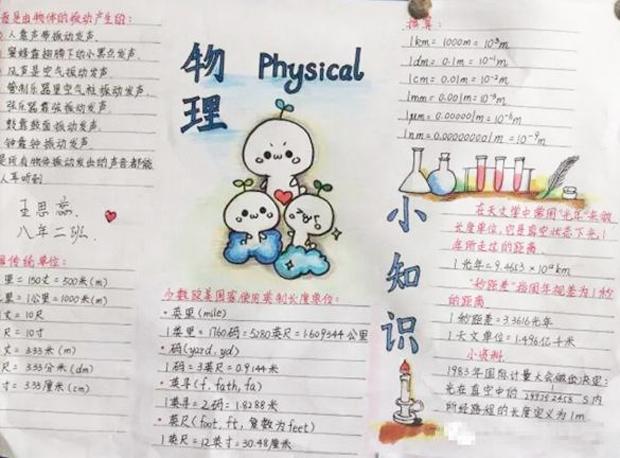 音是由物体的振动产生的:
人靠声带振动发声.
蜜蜂靠翅膀下的小黑点发声.
风声是空气振动发声.
管制乐器里空气柱振动发声.
弦乐器靠弦振动发声.
鼓靠鼓面振动发声.
钟靠钟振动发声.
是所有物体振动发出的声音都能
人耳听到
王思蕊
八年二班.
传统单位:
里=150丈=500米(m)
里=1公里=1000米(m)
丈=10尺
尺=10寸
丈=3.33米(m)
尺=3.33分米(dm)
寸=3.33厘米(cm)
物理
Physical
少数欧美国家使用英制长度单位:
·英里(mile)
1英里=1760码=5280英尺=1.609344公里
·码(yard, yd)
1码=3英尺=0.9144米
·英寻(f, fath, fa)
1英寻=2码=1.8288米
·英尺(foot, ft, 复数为feet)
1英尺=12英寸=30.48厘米
小知识
换算:
1km=1000m=10³m
1dm=0.1m=10⁻¹m
1cm=0.01m=10⁻²m
1mm=0.001m=10⁻³m
1μm=0.000001m=10⁻⁶m
1nm=0.000000001m=10⁻⁹m
在天文学中常用"光年"来做
长度单位,它是真空状态下光1
年所走过的距离.
1光年=9.4653×10¹²km
"秒距差"指周年视差为1秒
的距离
1秒距差=3.3616光年
1天文单位=1.496亿千米
小资料
1983年国际计量大会做出决定:
光在真空中的1/299792458 s内
所经路程的长度定义为1m